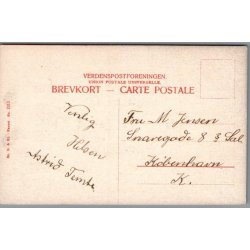 VERDENSPOSTFORENINGEN.
UNION POSTALE UNIVERSELLE.
BREVKORT – CARTE POSTALE
Venlig
Hilsen
Astrid
Fru M Jensen
8 3 Sal
København
K.